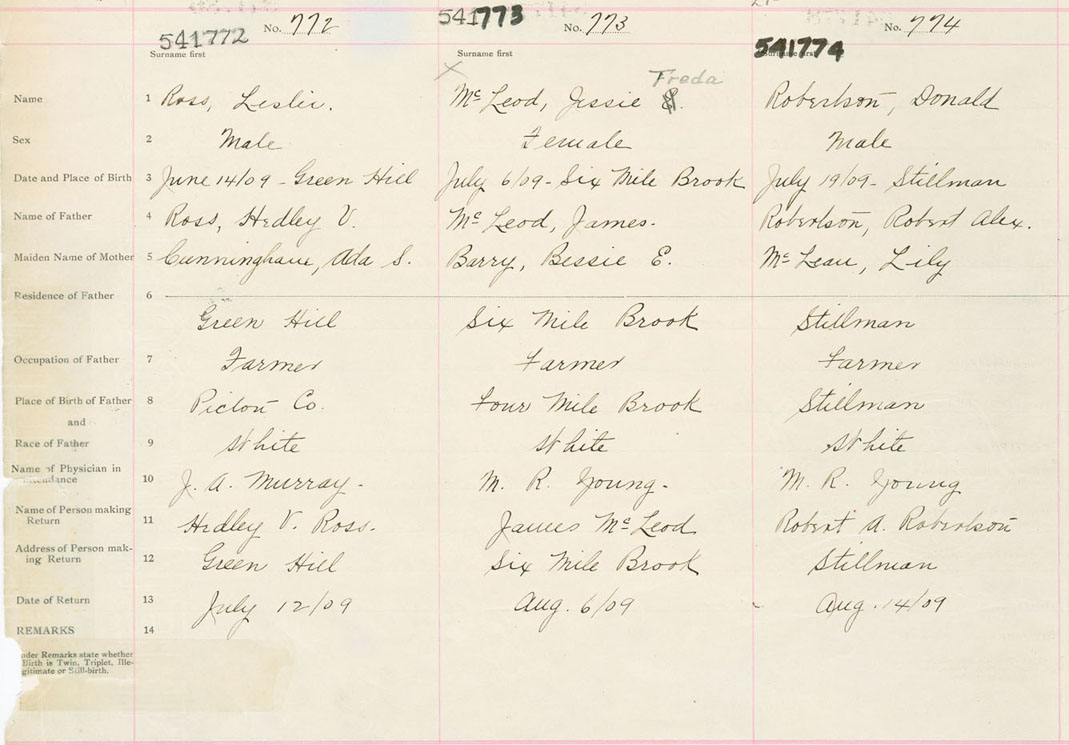 No. 772 541773 No. 773 No. 774
541772 541774
Surname first Surname first
Freda
Name 1 Ross, Leslie. McLeod, Jessie Robertson, Donald
Sex 2 Male Female Male
Date and Place of Birth 3 June 14/09 - Green Hill July 6/09 - Six Mile Brook July 19/09 - Stillman
Name of Father 4 Ross, Hedley V. McLeod, James. Robertson, Robert Alex.
Maiden Name of Mother 5 Cunningham, Ada S. Barry, Bessie E. McLean, Lily
Residence of Father 6
Green Hill Six Mile Brook Stillman
Occupation of Father 7 Farmer Farmer Farmer
Place of Birth of Father 8 Pictou Co. Four Mile Brook Stillman
and
Race of Father 9 White White White
Name of Physician in
Attendance 10 J. A. Murray - M. R. Young - M. R. Young
Name of Person making
Return 11 Hedley V. Ross. James McLeod Robert A. Robertson
Address of Person mak-
ing Return 12 Green Hill Six Mile Brook Stillman
Date of Return 13 July 12/09 Aug. 6/09 Aug. 14/09
REMARKS 14
nder Remarks state whether
Birth is Twin, Triplet, Ille-
gitimate or Still-birth.